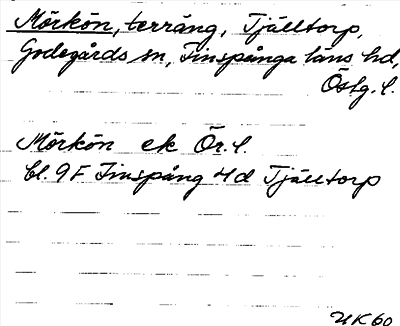 Mörkön, terräng, Tjälltorp,
Godegårds sn, Finspånga läns hd,
Östg. l.
Mörkön ek Ör. l.
bl. 9F Finspång 4d Tjälltorp
UK 60